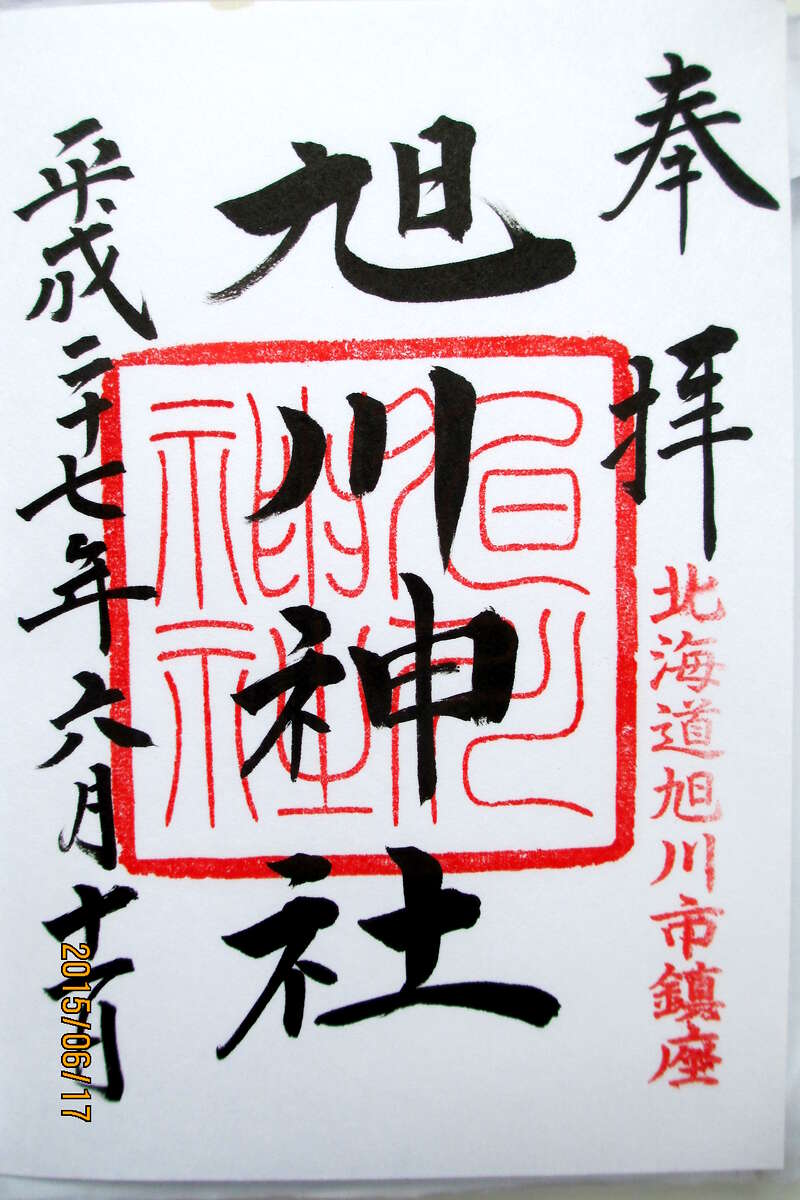 奉拝
北海道旭川市鎮座
旭川神社
平成二十七年六月十一日
2015/06/17